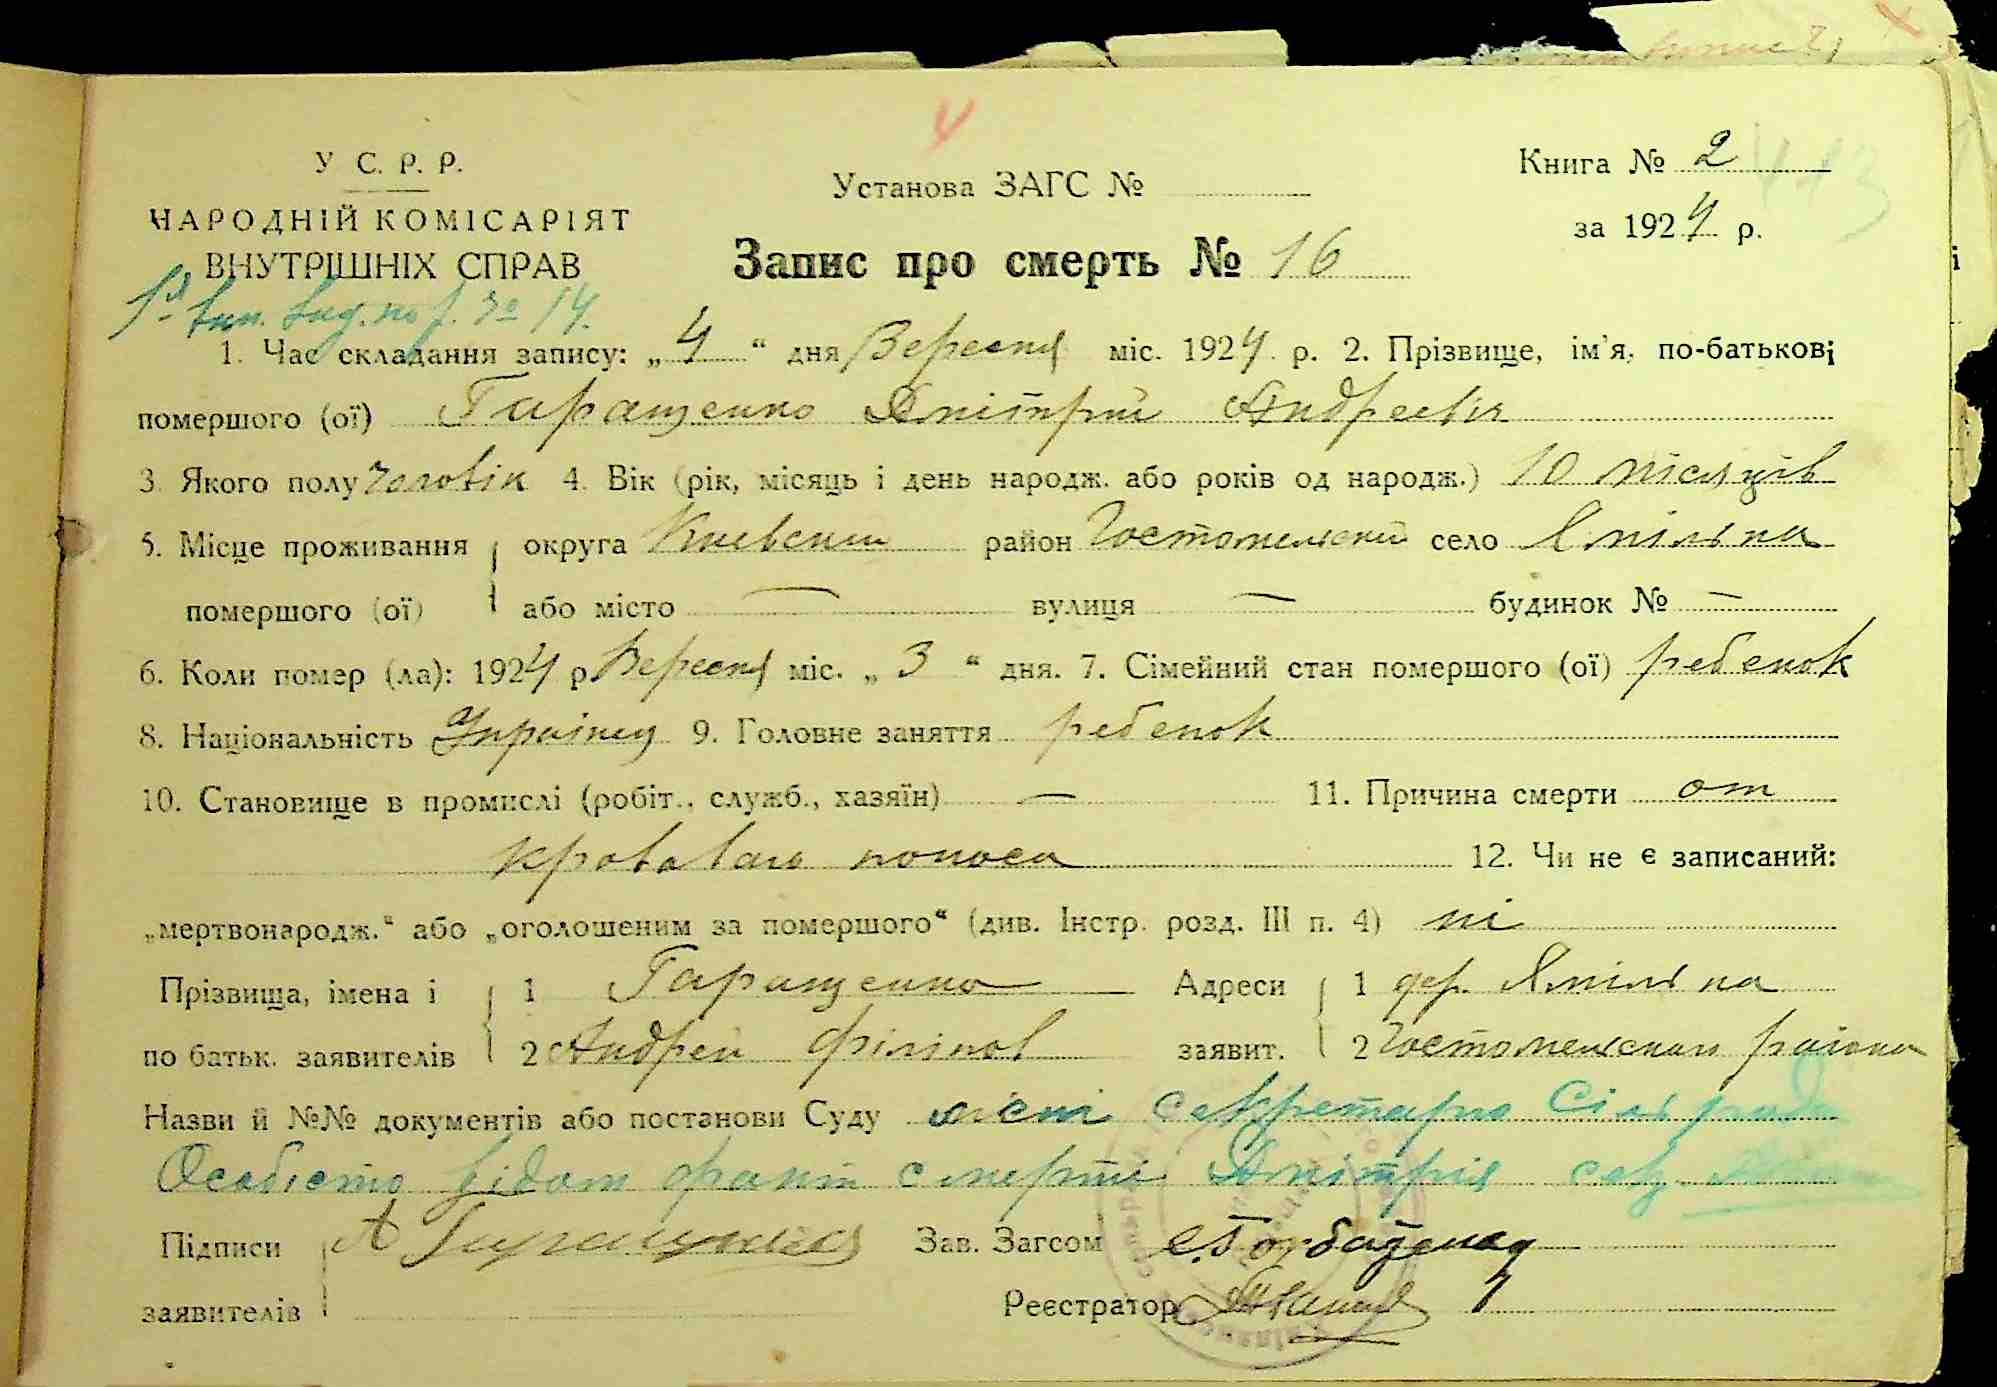 У С. Р. Р.
НАРОДНІЙ КОМІСАРІЯТ
ВНУТРІШНІХ СПРАВ
Установа ЗАГС №
Книга № 2
за 1924 р.
Запис про смерть № 16
№ 14.
1. Час складання запису: „ 4 “ дня Вересня міс. 1924 р. 2. Прізвище, ім'я, по-батькові
помершого (ої) Гаращенко Дмітрий Андреевич
3. Якого полу чоловік 4. Вік (рік, місяць і день народж. або років од народж.) 10 місяців
5. Місце проживання округа Киевский район Гостомельский село Ямілька
помершого (ої) або місто — вулиця — будинок № —
6. Коли помер (ла): 1924 р Вересня міс. „ 3 “ дня. 7. Сімейний стан помершого (ої) ребенок
8. Національність Украінец 9. Головне заняття ребенок
10. Становище в промислі (робіт., служб., хазяїн) — 11. Причина смерти от
кровавого поноса 12. Чи не є записаний:
„мертвонародж.“ або „оголошеним за помершого“ (див. Інстр. розд. III п. 4) ні
Прізвища, імена і 1 Гаращенко Адреси 1 дер. Ямілька
по батьк. заявителів 2 Андрей Філіпов заявит. 2 Гостомельского района
Назви й №№ документів або постанови Суду секретарю Сільради
Особісто відом факт смерті Дмітрія
Підписи А Гаращенко Зав. Загсом
заявителів Реєстратор